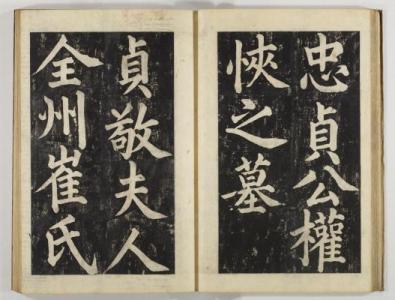 忠貞公權
悏之墓
貞敬夫人
全州崔氏